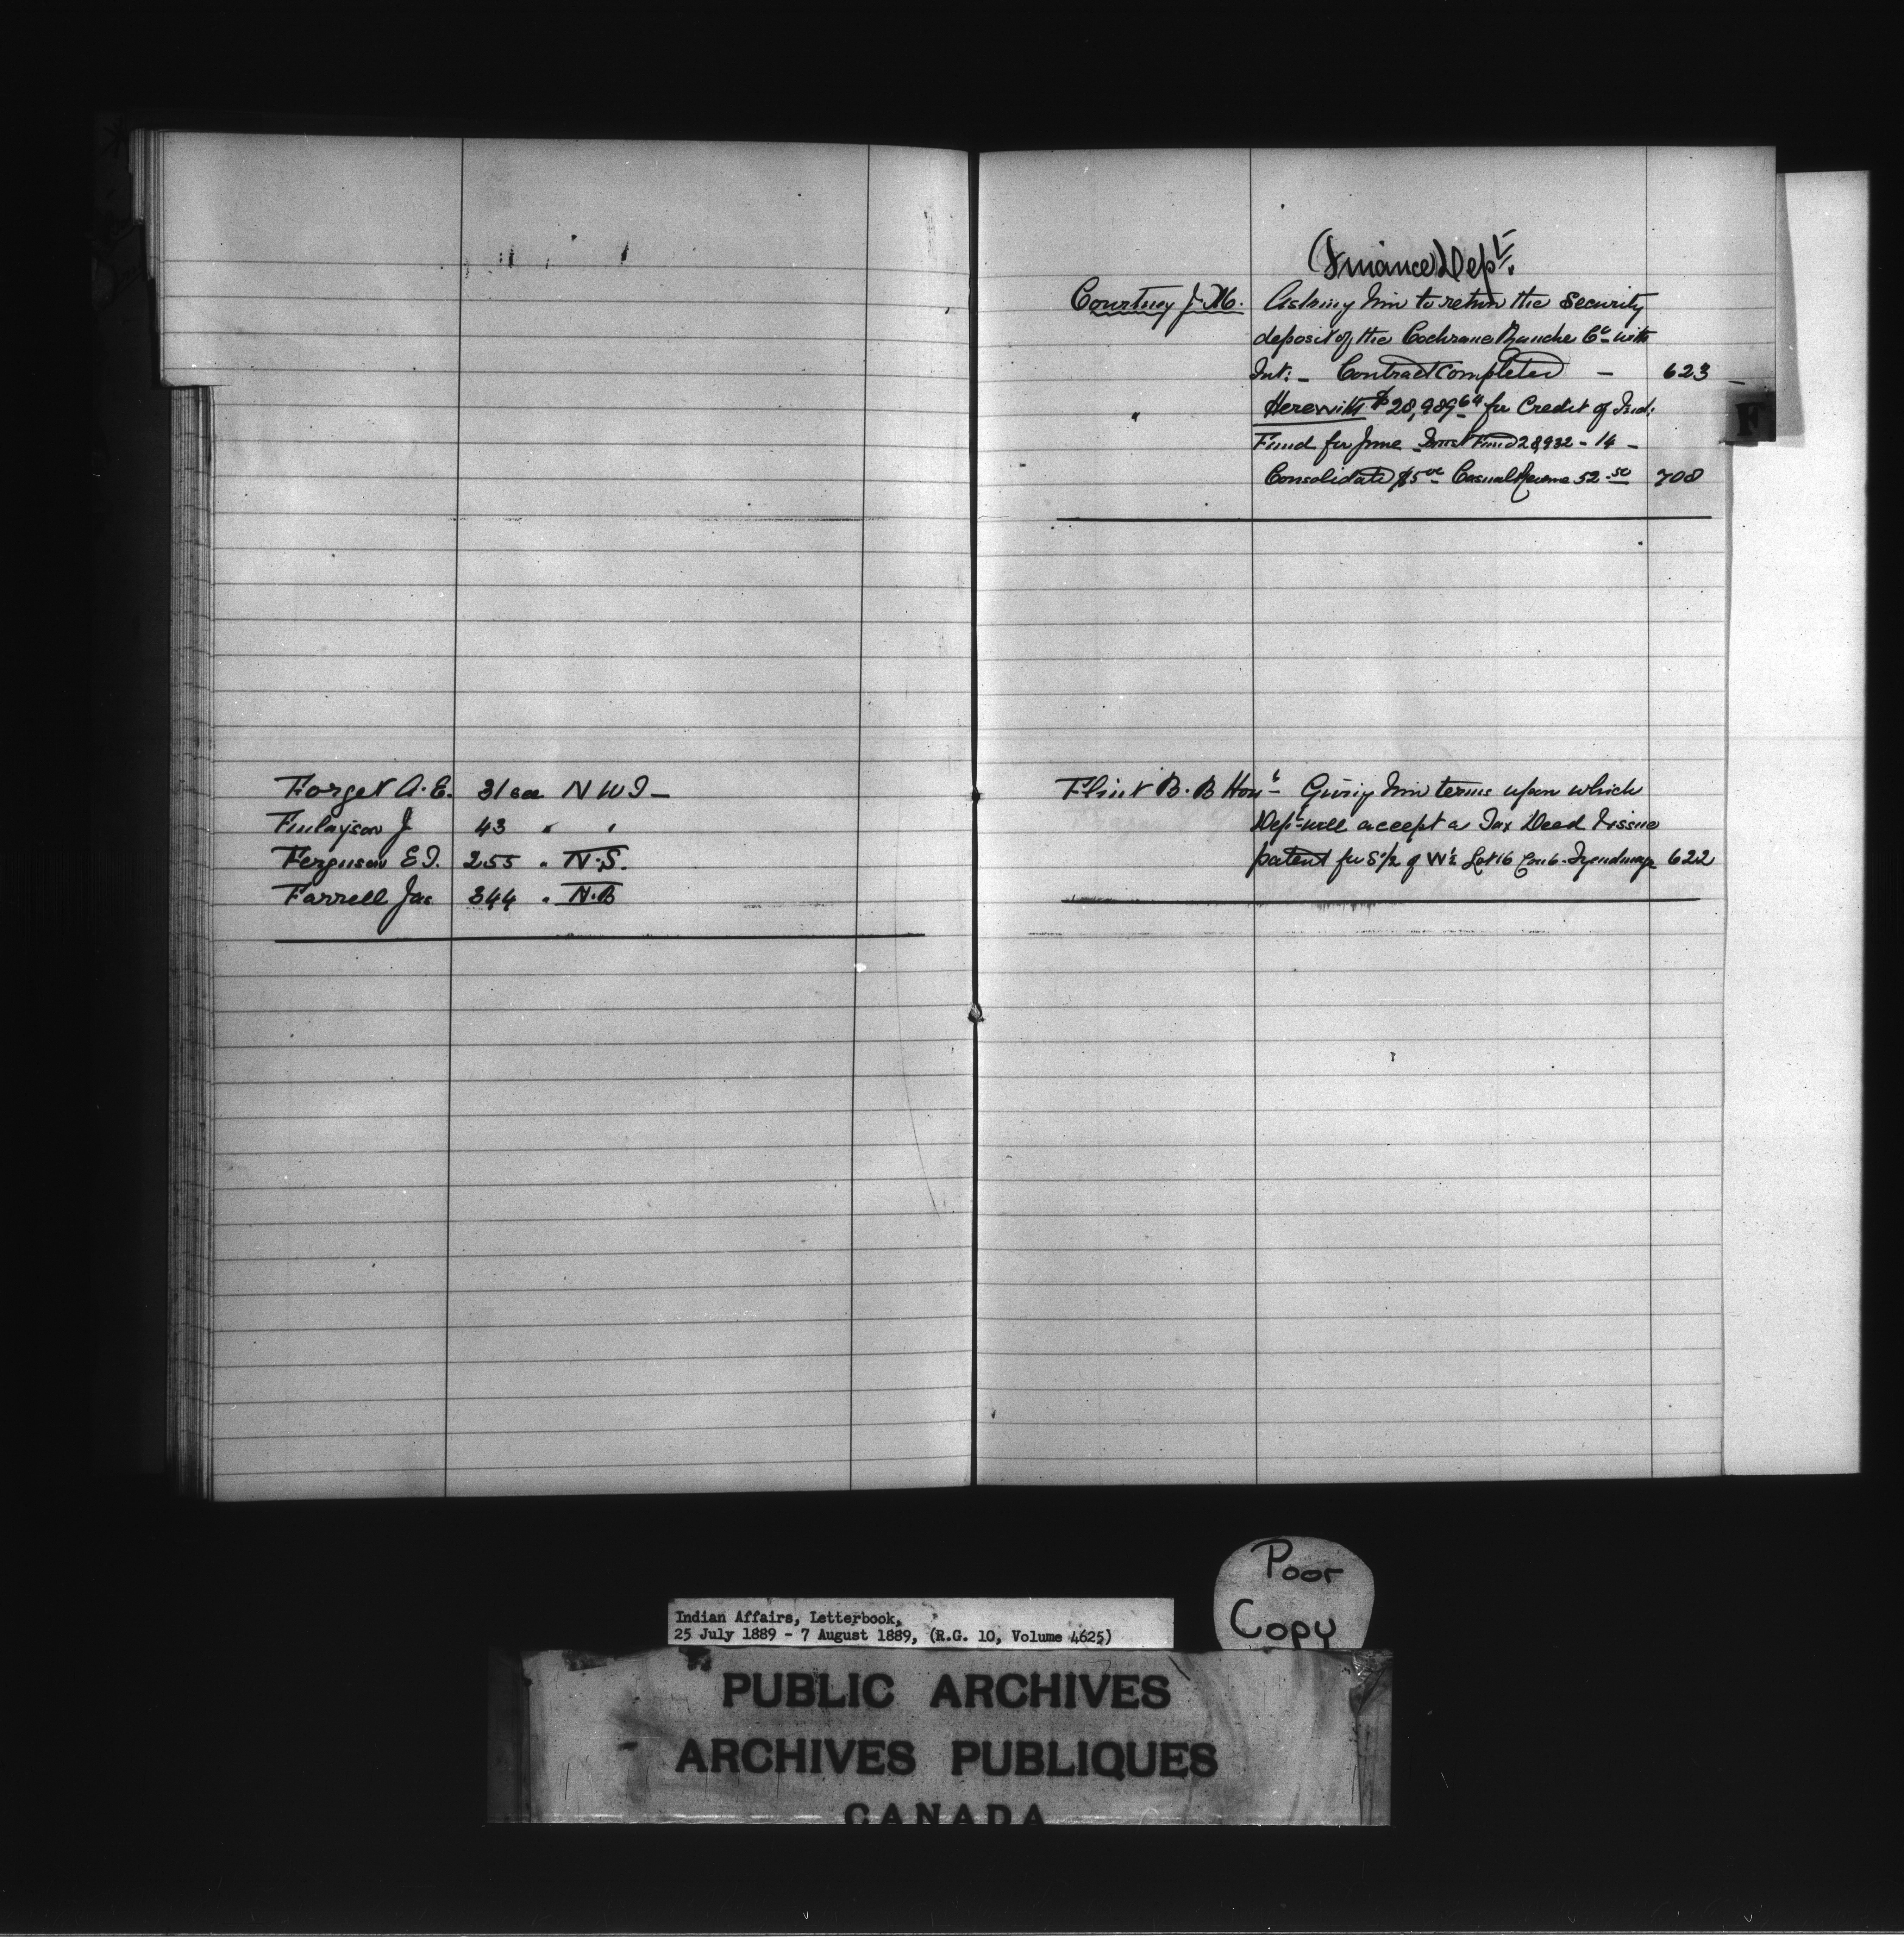 Forget A. E. 31 see N W T -
Finlayson J 43 " "
Ferguson E D. 255 " N.S.
Farrell Jas 344 " N.B
(Finance) Dept.
Courtney J. M. Asking him to return the Security
deposit of the Cochrane Ranche Co with
Int: - Contract Completed - 623
" Herewith $28,989.64 for Credit of Ind:
Fund for June Trust Fund 28,932 - 14 -
Consolidated $5 00 Casual Revenue 52 - 50 708
F
Flint B. B Hon Giving him terms upon which
Dept will accept a Tax Deed & issue
patent for S 1/2 of W 1/2 Lot 16 Con 6 - 622
Poor
Copy
Indian Affairs, Letterbook,
25 July 1889 - 7 August 1889, (R.G. 10, Volume 4625)
PUBLIC ARCHIVES
ARCHIVES PUBLIQUES
CANADA